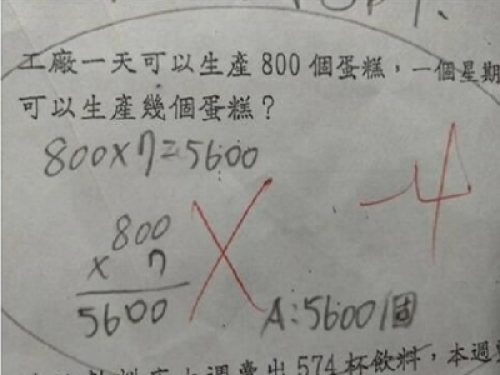 工廠一天可以生產800個蛋糕,一個星期
可以生產幾個蛋糕?
800×7=5600
-4
800
× 7
5600
A:5600個
574杯飲料,本週